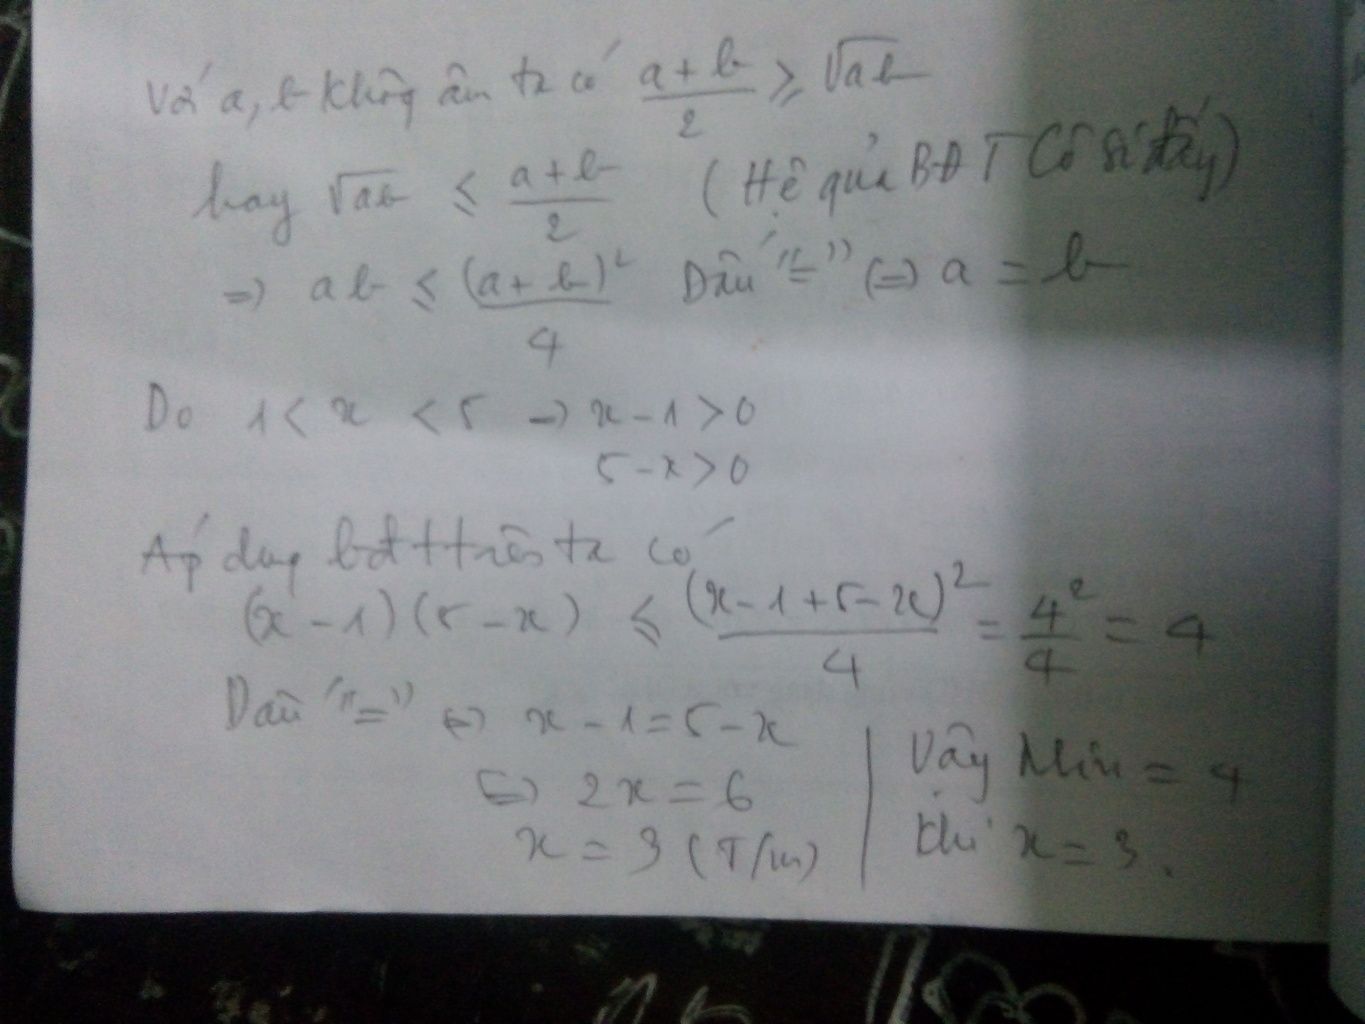 Với a, b không âm ta có (a+b)/2 ≥ √ab
hay √ab ≤ (a+b)/2 (Hệ quả BĐT Cô Si đấy)
=> ab ≤ (a+b)²/4 Dấu "=" (=) a = b
Do 1 < x < 5 → x - 1 > 0
5 - x > 0
Áp dụng bđt trên ta có
(x - 1)(5 - x) ≤ (x - 1 + 5 - x)²/4 = 4²/4 = 4
Dấu "=" <=> x - 1 = 5 - x
<=> 2x = 6
x = 3 (T/m)
Vậy Min = 4
khi x = 3.